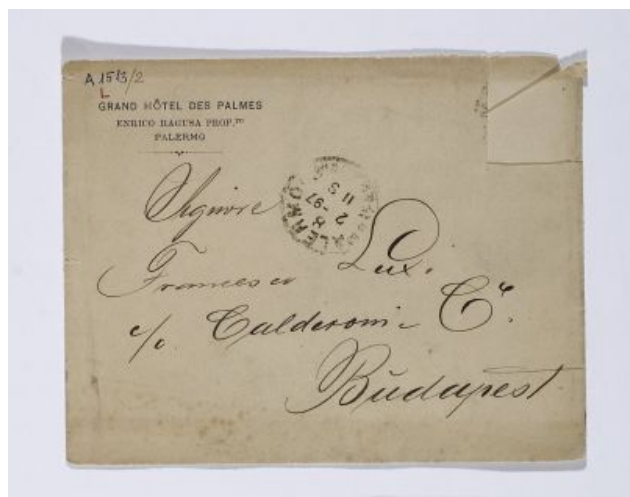 A 1513/2
L
GRAND HÔTEL DES PALMES
ENRICO RAGUSA PROP.re
PALERMO
PALERMO
8
2-97
11 S
Signore
Francesco Lux.
c/o Calderoni - Cie.
Budapest